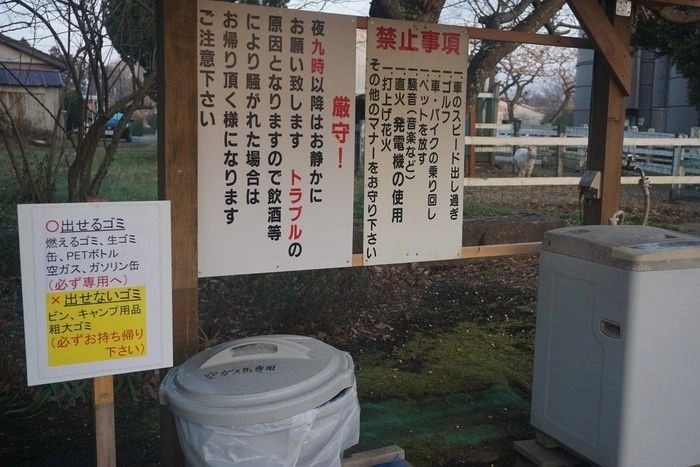 厳守!
夜九時以降はお静かに
お願い致します トラブルの
原因となりますので飲酒等
により騒がれた場合は
お帰り頂く様になります
ご注意下さい
禁止事項
一車のスピード出し過ぎ
一ゴルフ
一車・バイクの乗り回し
一ペットを放す
一騒音(音楽など)
一直火 発電機の使用
一打上げ花火
その他のマナーをお守り下さい
○出せるゴミ
燃えるゴミ、生ゴミ
缶、PETボトル
空ガス、ガソリン缶
(必ず専用へ)
×出せないゴミ
ビン、キャンプ用品
粗大ゴミ
(必ずお持ち帰り
下さい)
空ガス缶専用